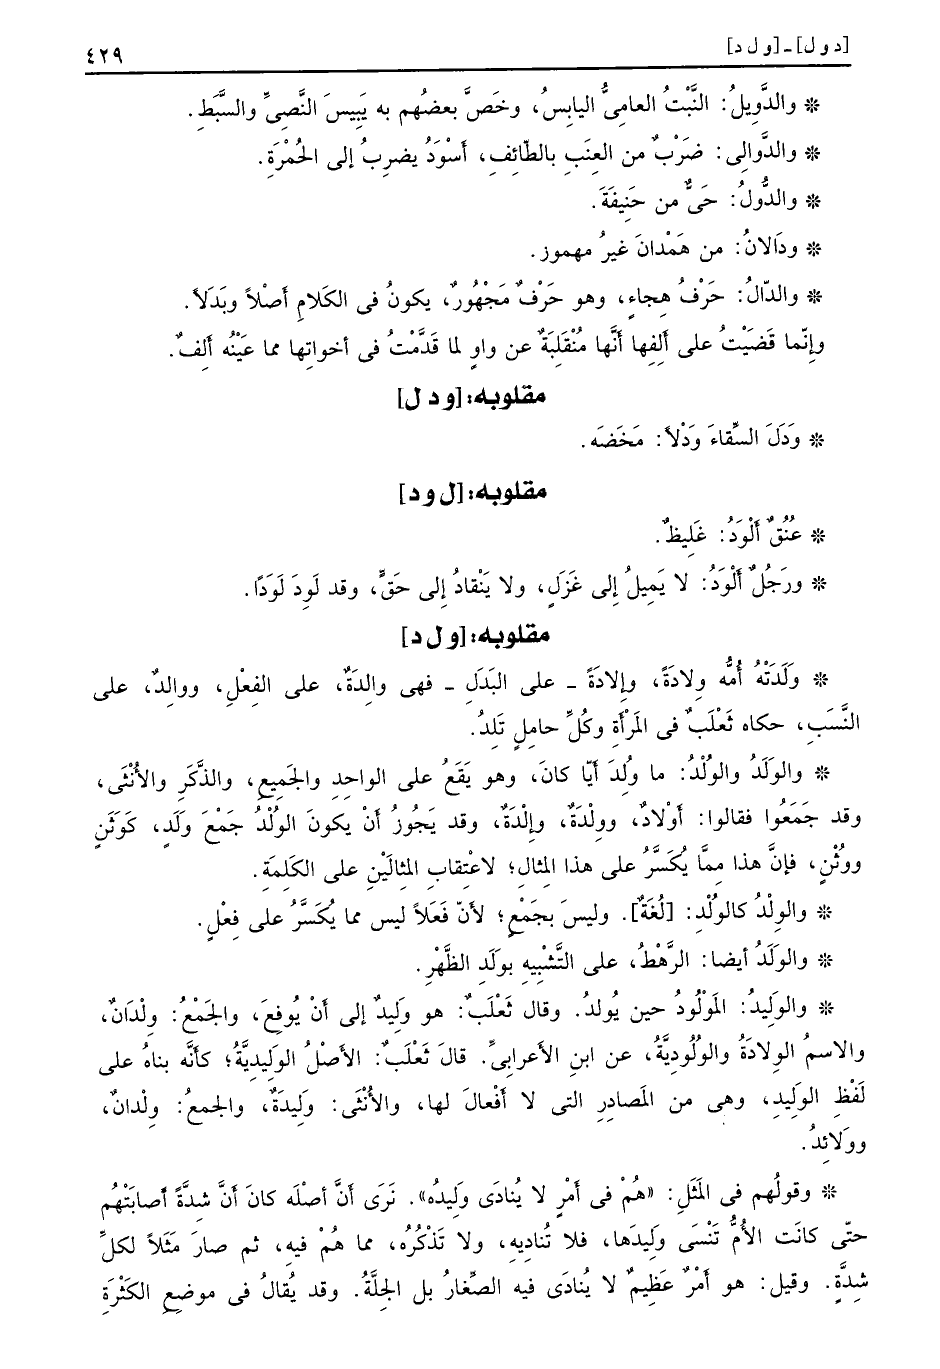 [د و ل] ـ [و ل د]
٤٢٩
* والدَّوِيلُ: النَّبْتُ العامىُّ اليابسُ، وخَصَّ بعضُهم به يَبِيسَ النَّصِىِّ والسَّبَطِ.
* والدَّوالِى: ضَرْبٌ من العِنَبِ بالطّائِفِ، أسْوَدُ يضرِبُ إلى الحُمْرَةِ.
* والدُّولُ: حَىٌّ من حَنِيفَةَ.
* ودَالانُ: من هَمْدانَ غيرُ مهموز.
* والدّالُ: حَرْفُ هِجاءٍ، وهو حَرْفٌ مَجْهُورٌ، يكونُ فى الكَلامِ أصْلاً وبَدَلاً.
وإنّما قَضَيْتُ على أَلِفِها أنَّها مُنْقَلِبَةٌ عن واوٍ لما قَدَّمْتُ فى أخواتِها مما عَيْنُه ألِفٌ.
مقلوبه: [و د ل]
* وَدَلَ السِّقاءَ وَدْلاً: مَخَضَه.
مقلوبه: [ل و د]
* عُنُقٌ ألْوَدُ: غَلِيظٌ.
* ورَجُلٌ ألْوَدُ: لا يَمِيلُ إلى غَزَلٍ، ولا يَنْقادُ إلى حَقٍّ، وقد لَوِدَ لَوَدًا.
مقلوبه: [و ل د]
* وَلَدَتْهُ أُمُّه وِلادَةً، وإلادَةً ـ على البَدَلِ ـ فهى والِدَةٌ، على الفِعْلِ، ووالِدٌ، على
النَّسَبِ، حكاه ثَعْلَبٌ فى المَرْأَةِ وكُلِّ حامِلٍ تَلِدُ.
* والوَلَدُ والوُلْدُ: ما وُلِدَ أيّا كانَ، وهو يَقَعُ على الواحِدِ والجَمِيعِ، والذَّكَرِ والأُنْثَى،
وقد جَمَعُوا فقالوا: أَوْلادٌ، ووِلْدَةٌ، وإلْدَةٌ، وقد يَجُوزُ أنْ يكونَ الوُلْدُ جَمْعَ وَلَدٍ، كَوَثَنٍ
ووُثْنٍ، فإنَّ هذا مِمَّا يُكَسَّرُ على هذا المِثالِ؛ لاعْتِقابِ المِثالَيْنِ على الكَلِمَةِ.
* والوِلْدُ كالوُلْدِ: [لُغَةٌ]. وليسَ بجَمْعٍ؛ لأنّ فَعَلاً ليس مما يُكَسَّرُ على فِعْلٍ.
* والوَلَدُ أيضا: الرَّهْطُ، على التَّشْبِيهِ بوَلَدِ الظَّهْرِ.
* والوَلِيدُ: المَوْلُودُ حين يُولدُ. وقال ثَعْلَبٌ: هو وَلِيدٌ إلى أنْ يُوفِعَ، والجَمْعُ: وِلْدَانٌ،
والاسمُ الوِلادَةُ والوُلُودِيَّةُ، عن ابنِ الأعرابِىِّ. قالَ ثَعْلَبٌ: الأصْلُ الوَلِيدِيَّةُ؛ كأنَّه بناهُ على
لَفْظِ الوَلِيدِ، وهى من المَصادِرِ التى لا أفْعالَ لها، والأُنْثَى: وَلِيدَةٌ، والجمعُ: ولْدانٌ،
ووَلَائِدُ.
* وقولُهم فى المَثَلِ: «هُمْ فى أمْرٍ لا يُنادَى وَلِيدُه». نَرَى أنَّ أصْلَه كانَ أنَّ شدَّةً أصابَتْهُم
حتّى كانَت الأُمُّ تَنْسَى وَلِيدَها، فلا تُنادِيهِ، ولا تَذْكُرُه، مما هُمْ فيهِ، ثم صارَ مَثَلاً لكلِّ
شِدَّةٍ. وقيل: هو أَمْرٌ عَظِيمٌ لا يُنادَى فيه الصِّغارُ بل الجِلَّةُ. وقد يُقالُ فى موضعِ الكَثْرَةِ